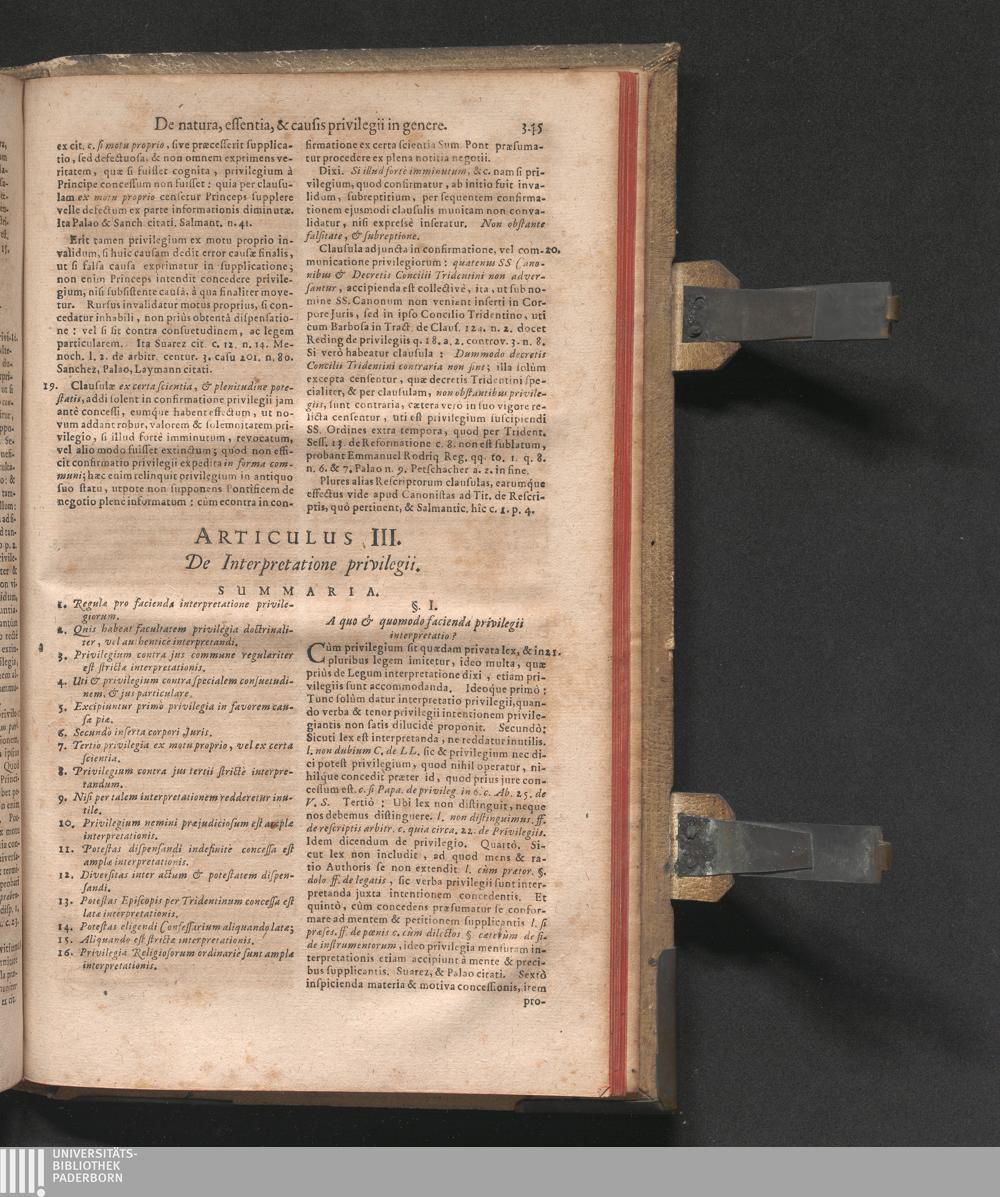 De natura, essentia, & causis privilegii in genere.
345
ex cit. c. si motu proprio, sive præcesserit supplica-
tio, sed defectuosa, & non omnem exprimens ve-
ritatem, quæ si fuisset cognita, privilegium à
Principe concessum non fuisset: quia per clausu-
lam ex motu proprio censetur Princeps supplere
velle defectum ex parte informationis diminutæ.
Ita Palao & Sanch citati. Salmant. n. 41.
Erit tamen privilegium ex motu proprio in-
validum, si huic causam dedit error causæ finalis,
ut si falsa causa exprimatur in supplicatione;
non enim Princeps intendit concedere privile-
gium, nisi subsistente causâ, à qua finaliter move-
tur. Rursus invalidatur motus proprius, si con-
cedatur inhabili, non priùs obtentâ dispensatio-
ne: vel si sit contra consuetudinem, ac legem
particularem. Ita Suarez cit. c. 12. n. 14. Me-
noch. l. 2. de arbitr. centur. 3. casu 201. n. 80.
Sanchez, Palao, Laymann citati.
19. Clausulæ ex certa scientia, & plenitudine pote-
statis, addi solent in confirmatione privilegii jam
antè concessi, eumque habent effectum, ut no-
vum addant robur, valorem & solemnitatem pri-
vilegio, si illud fortè imminutum, revocatum,
vel alio modo fuisset extinctum; quod non effi-
cit confirmatio privilegii expedita in forma com-
muni; hæc enim relinquit privilegium in antiquo
suo statu, utpote non supponens Pontificem de
negotio plenè informatum: cùm econtra in con-
firmatione ex certa scientia Sum. Pont præsuma-
tur procedere ex plena notitia negotii.
Dixi. Si illud fortè imminutum, &c. nam si pri-
vilegium, quod confirmatur, ab initio fuit inva-
lidum, subreptitium, per sequentem confirma-
tionem ejusmodi clausulis munitam non conva-
lidatur, nisi expressè inseratur. Non obstante
falsitate, & subreptione.
Clausula adjuncta in confirmatione, vel com- 20.
municatione privilegiorum: quatenus SS Cano-
nibus & Decretis Concilii Tridentini non adver-
santur, accipienda est collectivè, ita, ut sub no-
mine SS. Canonum non veniant inserti in Cor-
pore Juris, sed in ipso Concilio Tridentino, uti
cum Barbosa in Tract. de Claus. 124. n. 2. docet
Reding de privilegiis q. 18. a. 2. controv. 3. n. 8.
Si verò habeatur clausula: Dummodo decretis
Concilii Tridentini contraria non sint; illa solùm
excepta censentur, quæ decretis Tridentini spe-
cialiter, & per clausulam, non obstantibus privile-
giis, sunt contraria, cætera verò in suo vigore re-
licta censentur, uti est privilegium suscipiendi
SS. Ordines extra tempora, quod per Trident.
Sess. 13. de Reformatione c. 8. non est sublatum,
probant Emmanuel Rodriq Reg. qq. to. 1. q. 8.
n. 6. & 7. Palao n. 9. Petschacher a. 2. in fine.
Plures alias Rescriptorum clausulas, earumque
effectus vide apud Canonistas ad Tit. de Rescri-
ptis, quò pertinent, & Salmantic. hîc c. 1. p. 4.
ARTICULUS III.
De Interpretatione privilegii.
SUMMARIA.
1. Regula pro facienda interpretatione privile-
giorum.
2. Quis habeat facultatem privilegia doctrinali-
ter, vel authenticè interpretandi.
3. Privilegium contra jus commune regulariter
est strictæ interpretationis.
4. Uti & privilegium contra specialem consuetudi-
nem, & jus particulare.
5. Excipiuntur primò privilegia in favorem cau-
sæ piæ.
6. Secundò inserta corpori Juris.
7. Tertiò privilegia ex motu proprio, vel ex certa
scientia.
8. Privilegium contra jus tertii strictè interpre-
tandum.
9. Nisi per talem interpretationem redderetur inu-
tile.
10. Privilegium nemini præjudiciosum est amplæ
interpretationis.
11. Potestas dispensandi indefinitè concessa est
amplæ interpretationis.
12. Diversitas inter actum & potestatem dispen-
sandi.
13. Potestas Episcopis per Tridentinum concessa est
latæ interpretationis.
14. Potestas eligendi Confessarium aliquando latæ;
15. Aliquando est strictæ interpretationis.
16. Privilegia Religiosorum ordinariè sunt amplæ
interpretationis.
§. I.
A quo & quomodo facienda privilegii
interpretatio?
Cùm privilegium sit quædam privata lex, & in 21.
pluribus legem imitetur, ideo multa, quæ
priùs de Legum interpretatione dixi, etiam pri-
vilegiis sunt accommodanda. Ideoque primò:
Tunc solùm datur interpretatio privilegii, quan-
do verba & tenor privilegii intentionem privile-
giantis non satis dilucidè proponit. Secundò:
Sicuti lex est interpretanda, ne reddatur inutilis.
l. non dubium C. de LL. sic & privilegium nec di-
ci potest privilegium, quod nihil operatur, ni-
hilque concedit præter id, quod priùs jure con-
cessum est. c. si Papa. de privileg. in 6. c. Ab. 25. de
V. S. Tertiò: Ubi lex non distinguit, neque
nos debemus distinguere. l. non distinguimus. ff.
de rescriptis arbitr. c. quia circa. 22. de Privilegiis.
Idem dicendum de privilegio. Quartò. Si-
cut lex non includit, ad quod mens & ra-
tio Authoris se non extendit l. cùm prætor. §.
dolo ff. de legatis, sic verba privilegii sunt inter-
pretanda juxta intentionem concedentis. Et
quintò, cùm concedens præsumatur se confor-
mare ad mentem & petitionem supplicantis l. si
præses. ff. de pœnis c. cùm dilectos. § cæterùm de fi-
de instrumentorum, ideo privilegia mensuram in-
terpretationis etiam accipiunt à mente & preci-
bus supplicantis. Suarez, & Palao citati. Sextò
inspicienda materia & motiva concessionis, item
pro-
UNIVERSITÄTS-
BIBLIOTHEK
PADERBORN